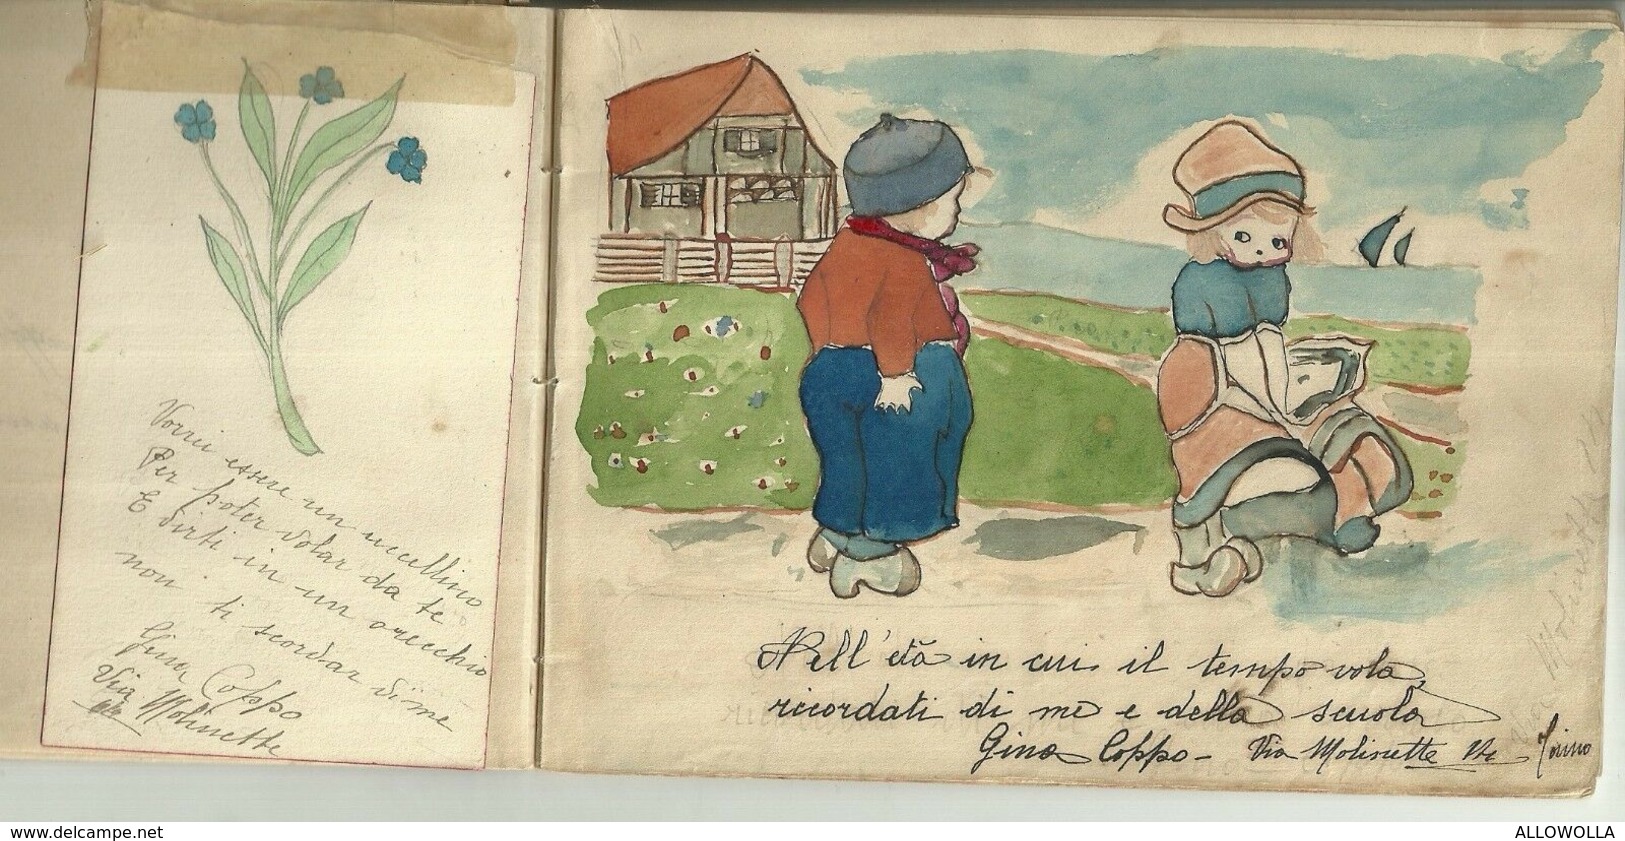 Vorrei essere un uccellino
Per poter volar da te
E dirti in un orecchio
non ti scordar di me
Gina Coppo
Via Molinette
Nell'età in cui il tempo vola
ricordati di me e della scuola
Gina Coppo - Via Molinette Torino
Via Molinette
www.delcampe.net
ALLOWOLLA